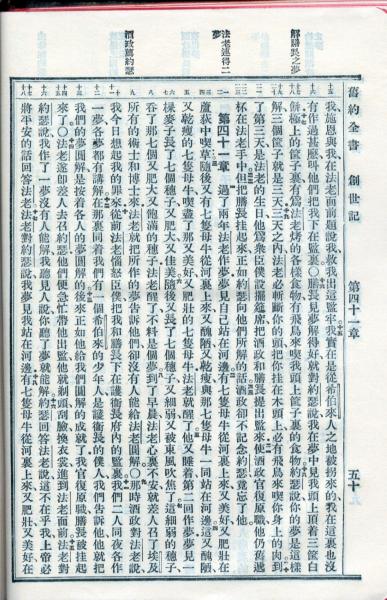 舊約全書 創世記 第四十一章 五十
解膳長之夢
法老連得二夢
酒政薦約瑟
我施恩與我在法老面前題說我救我出這監牢我實在是從希伯來人之地被拐來的我在這裏也沒
有作過甚麼叫他們把我下在監裏○膳長見夢解得好就對約瑟說我在夢中見我頭上頂着三筐白
餅極上的筐子裏有爲法老烤的各樣食物有飛鳥來喫我頭上筐子裏的食物約瑟說你的夢是這樣
解三個筐子就是三天三天之內法老必斬斷你的頭把你挂在木頭上必有飛鳥來喫你身上的肉到
了第三天是法老的生日他爲衆臣僕設擺筵席把酒政和膳長提出監來使酒政官復原職他仍舊遞
杯在法老手中但把膳長挂起來正如約瑟向他們所解的話酒政卻不記念約瑟竟忘了他
第四十一章 過了兩年法老作夢夢見自己站在河邊有七隻母牛從河裏上來又美好又肥壯在
蘆荻中喫草隨後又有七隻母牛從河裏上來又醜陋又乾瘦與那七隻母牛一同站在河邊這又醜陋
又乾瘦的七隻母牛喫盡了那又美好又肥壯的七隻母牛法老就醒了他又睡着第二回作夢夢見一
棵麥子長了七個穗子又肥大又佳美隨後又長了七個穗子又細弱又被東風吹焦了這細弱的穗子
吞了那七個又肥大又飽滿的穗子法老醒了不料是個夢到了早晨法老心裏不安就差人召了埃及
所有的術士和博士來法老就把所作的夢告訴他們卻沒有人能給法老圓解那時酒政對法老說
我今日想起我的罪來從前法老惱怒臣僕把我和膳長下在護衛長府內的監裏我們二人同夜各作
一夢各夢都有講解在那裏同着我們有一個希伯來的少年人是護衛長的僕人我們告訴他他就把
我們的夢圓解是按着各人的夢圓解的後來正如他給我們圓解的成就了我官復原職膳長被挂起
來了○法老遂卽差人去召約瑟他們便急忙帶他出監他就剃頭刮臉換衣裳進到法老面前法老對
約瑟說我作了一夢沒有人能解我聽見人說你聽了夢就能解約瑟回答法老說這不在乎我上帝必
將平安的話回答法老法老對約瑟說我夢見我站在河邊有七隻母牛從河裏上來又肥壯又美好在